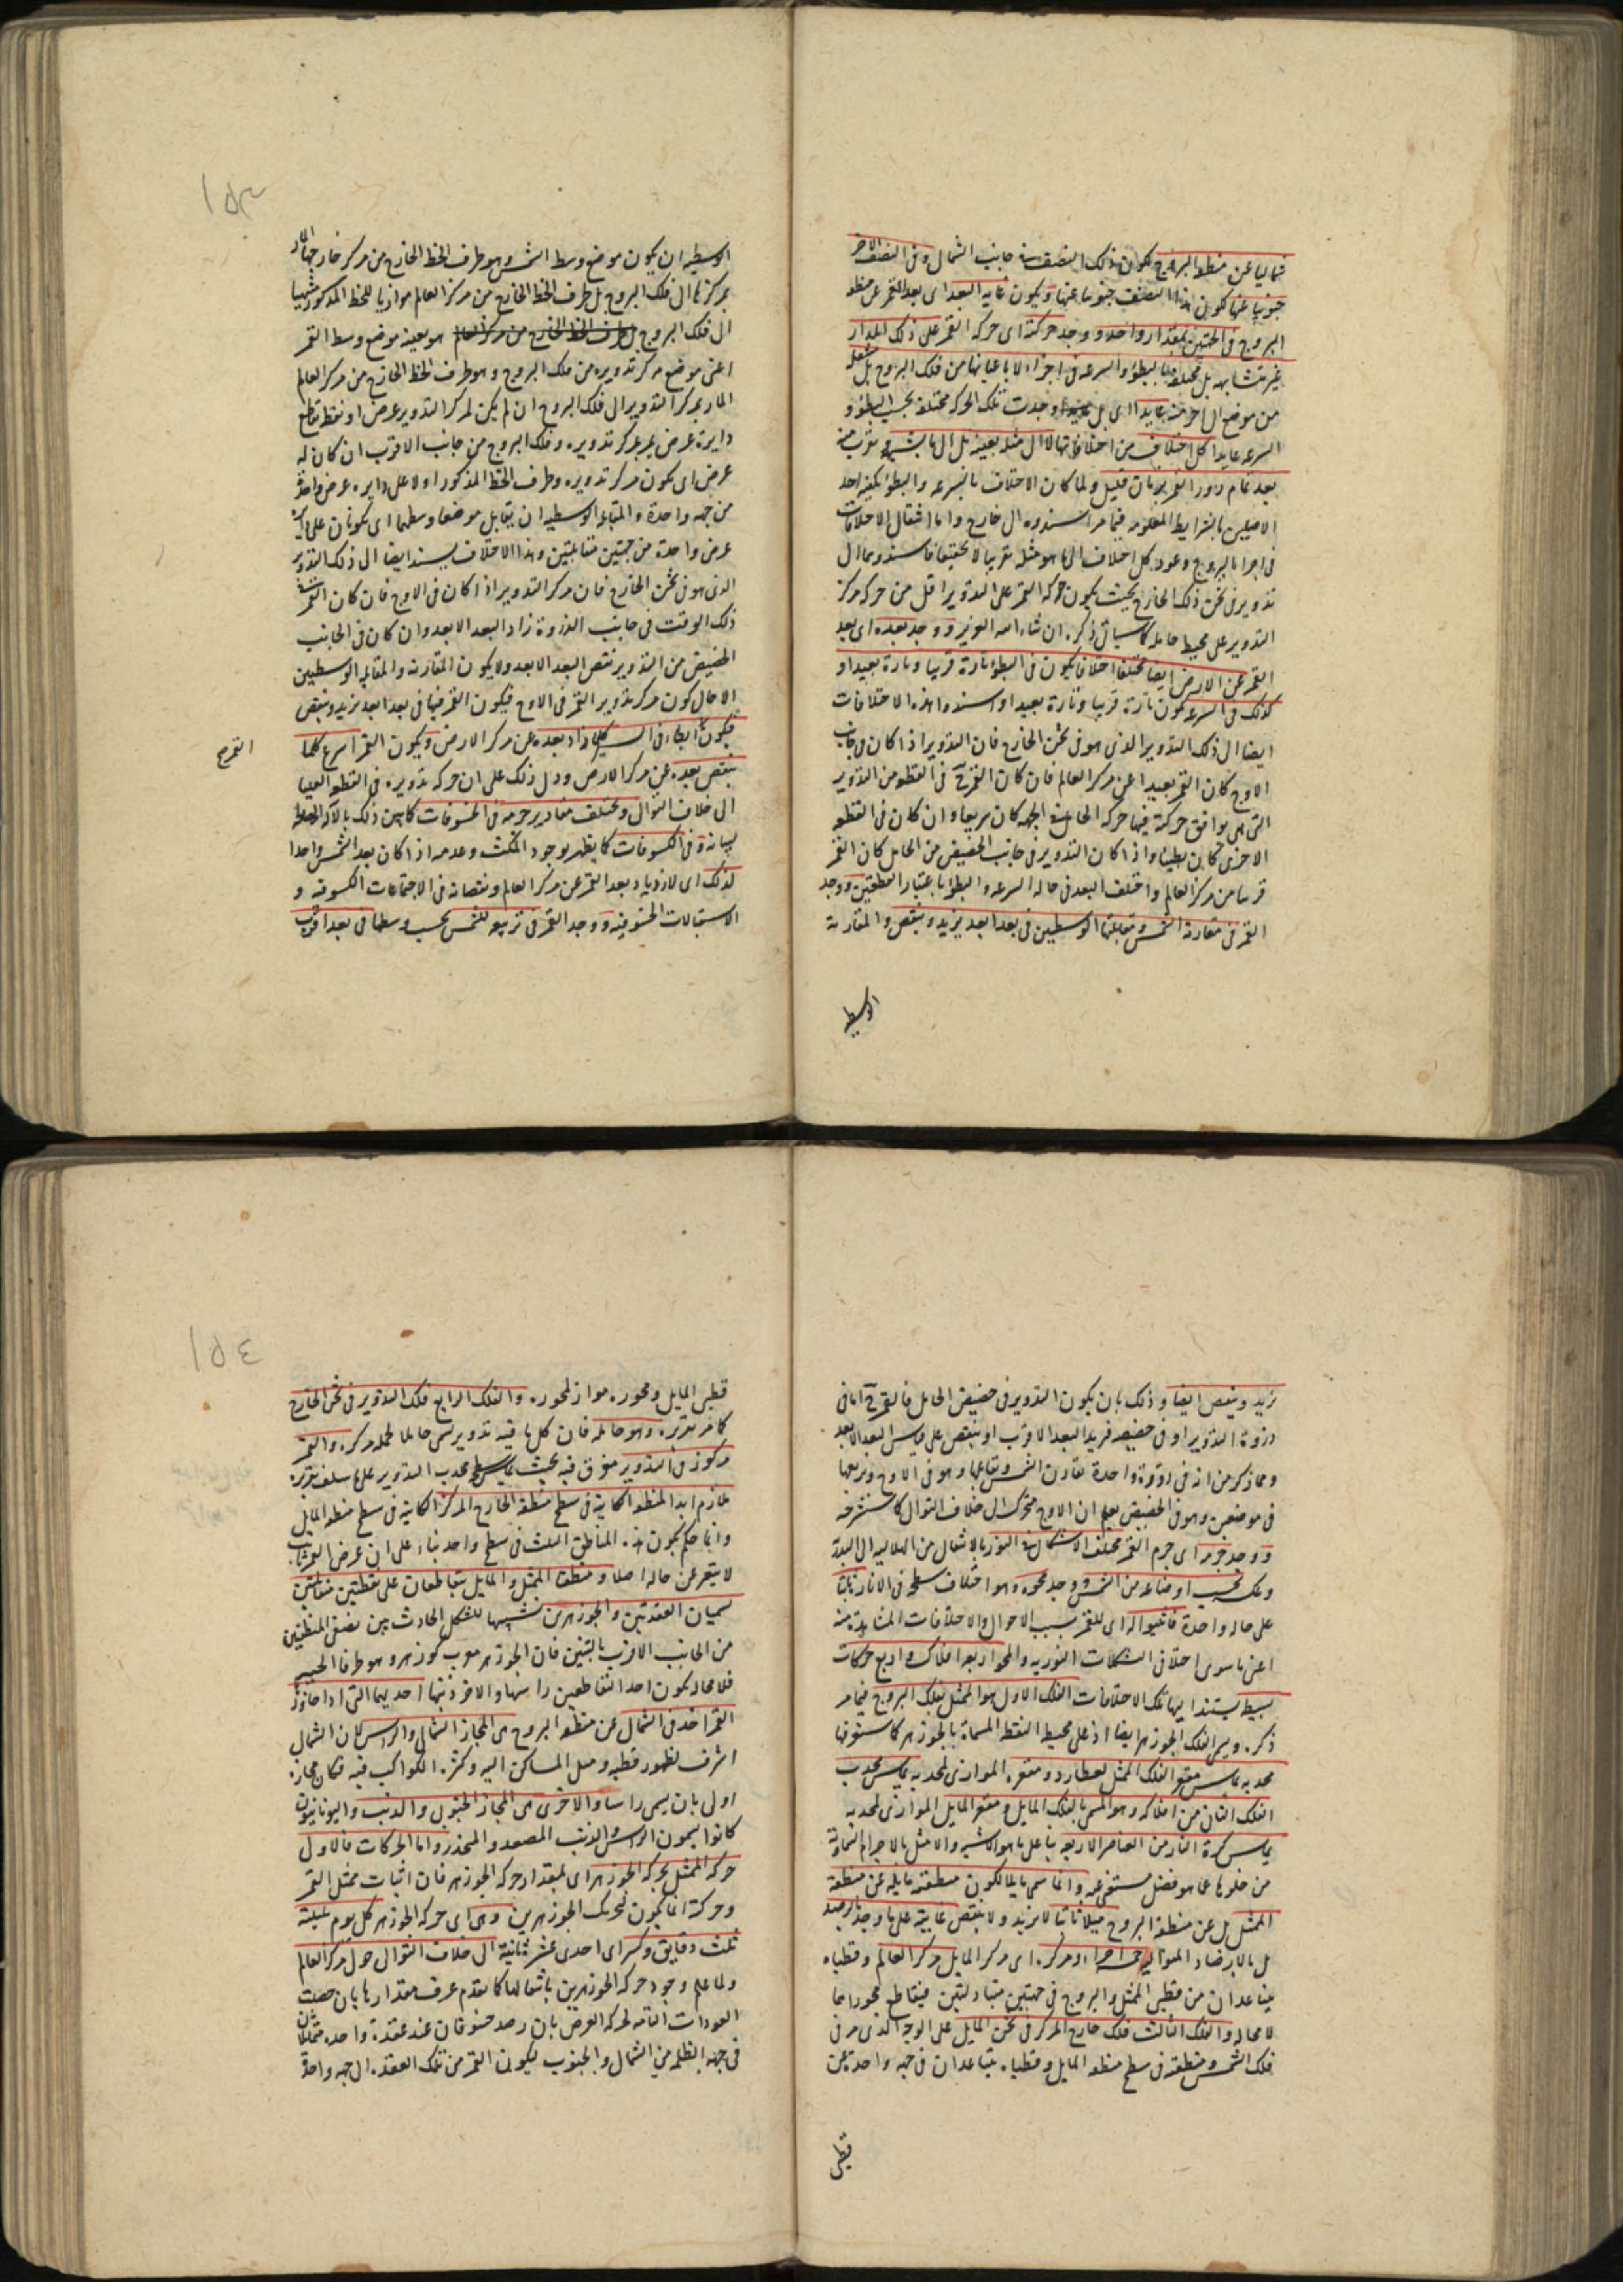 شماليا عن منطقة البروج لكون ذلك النصف في جانب الشمال وفي النصف الآخر
جنوبيا عنها لكون هذا النصف جنوبيا عنها ويكون غاية البعد اى بعد القمر عن منطقة
البروج فى الجهتين بمقدار واحد ووجد حركته اى حركة القمر على ذلك المدار
غير متشابهة بل مختلفة بالبطؤ والسرعة فى اجزاء لا باعيانها من فلك البروج بل
من موضع الى اخر منه عايدا اى بل وجدت تلك الحركة مختلفة بحسب البطؤ و
السرعة عايدا كل اختلاف من اختلافاتها لا الى مثله بعينه بل الى ما يشبهه ويقرب منه
بعد تمام دور القمر بزمان قليل ولما كان الاختلاف بالسرعة والبطؤ يكفيه احد
الاصلين بالشرايط المعلومة فيما مر اسندوه الى خارج واما انتقال الاختلافات
فى اجزاء البروج وعود كل اختلاف الى ما هو مثله تقريبا لا تحقيقا فاسندوهما الى
تدوير فى ثخن ذلك الخارج بحيث يكون حركة القمر على التدوير اقل من حركة مركز
التدوير على محيط حامله كما سياتى ذكره ان شاء الله العزيز ووجد بعده اى بعد
القمر عن الارض ايضا مختلفا اختلافا يكون فى البطؤ تارة قريبا وتارة بعيدا و
كذلك فى السرعة يكون تارة قريبا وتارة بعيدا واسندوا هذه الاختلافات
ايضا الى ذلك التدوير الذى هو فى ثخن الخارج فان التدوير اذا كان فى جانب
الاوج كان القمر بعيدا عن مركز العالم فان كان القمر ح فى القطعة من التدوير
التى يوافق حركته فيها حركة الحامل فى الجهة كان سريعا وان كان فى القطعة
الاخرى كان بطيئا واذا كان التدوير فى جانب الحضيض من الحامل كان القمر
قريبا من مركز العالم واختلف البعد فى حالة السرعة والبطؤ باعتبار القطعتين ووجد
القمر فى مقارنة الشمس ومقابلتها الوسطيتين فى بعد ابعد يزيد وينقص والمقارنة
الوسطية
١٥٣
الوسطية ان يكون موضع وسط الشمس وهو طرف الخط الخارج من مركز خارجها المار
بمركزها الى فلك البروج بل طرف الخط الخارج من مركز العالم موازيا للخط المذكور منتهيا
الى فلك البروج بل طرف الخط الخارج من مركز العالم هو بعينه موضع وسط القمر
اعنى موضع مركز تدويره من فلك البروج وهو طرف الخط الخارج من مركز العالم
المار بمركز التدوير الى فلك البروج ان لم يكن لمركز التدوير عرض او نقطة تقاطع
دايرة عرض يمر بمركز تدويره وفلك البروج من جانب الاقرب ان كان له
عرض اى يكون مركز تدويره وطرف الخط المذكور اولا على دايره عرض واحدة
من جهة واحدة والمقابلة الوسطية ان يتقابل موضعا وسطهما اى يكونان على دايرة
عرض واحدة من جهتين متقابلتين وهذا الاختلاف يسند ايضا الى ذلك التدوير
الذى هو فى ثخن الخارج فان مركز التدوير اذا كان فى الاوج فان كان القمر فى
ذلك الوقت فى جانب الذروة زاد البعد الابعد وان كان فى الجانب
الحضيض من التدوير نقص البعد الابعد ولا يكون المقارنة والمقابلة الوسطيين
الا حال كون مركز تدوير القمر فى الاوج فيكون القمر فيها فى بعد ابعد يزيد وينقص
فيكون ابطاء فى السير كلما زاد بعده عن مركز الارض ويكون القمر اسرع كلما
القمر ح
ينقص بعده عن مركز الارض ودل ذلك على ان حركة تدويره فى القطعة العليا
الى خلاف التوالى ويختلف مقادير جرمه فى الخسوفات كما يبين ذلك بالآلة
وفى الكسوفات كما يظهر بوجود المكث وعدمه اذا كان بعد الشمس واحدا
لذلك اى لازدياد بعد القمر عن مركز العالم ونقصانه فى الاجتماعات الكسوفية و
الاستقبالات الخسوفية ووجد القمر فى تربيعه للشمس بحسب وسطها فى بعد اقرب
يزيد وينقص ايضا وذلك بان يكون التدوير فى حضيض الحامل فالقمر ح اما فى
ذروة التدوير او فى حضيضه فيزيد البعد الاقرب او ينقص على قياس البعد الابعد
ومما ذكر من انه فى دورة واحدة يقارن الشمس ويقابلها وهو فى الاوج ويربعها
فى موضعين وهو فى الحضيض يعلم ان الاوج متحرك الى خلاف التوالى كما سنشرحه
ووجد جرمه اى جرم القمر مختلف الاشكال فى النور بالانتقال من الهلالية الى البدرية
وعكسه بحسب اوضاعه من الشمس ووجد محوه وهو اختلاف سطحه فى الانارة ثابتا
على حالة واحدة فاثبتوا له اى للقمر بسبب الاحوال والاختلافات المشاهدة منه
اعنى ما سوى اختلاف التشكلات النورية والمحو اربعة افلاك واربع حركات
بسيطة يستند اليها تلك الاختلافات الفلك الاول هو الممثل بفلك البروج فيما مر
ذكره ويسمى الفلك الجوزهر ايضا اذ على محيطه النقطة المسماة بالجوزهر كما ستعرفها
محدبه يماس مقعر الفلك الممثل لعطارد ومقعره الموازى لمحدبه يماس محدب
الفلك الثانى من افلاكه وهو المسمى بالفلك المايل ومقعر المايل الموازى لمحدبه
يماس كرة النار من العناصر الاربعة بناء على ما هو الاشبه والامثل بالاجرام السماوية
من خلوها عما هو فضل مستغنى عنه وانما سمى مايلا لكون منطقته مايلة عن منطقة
الممثل بل عن منطقة البروج ميلا ثابتا لا يزيد ولا ينقص غايته على ما وجد بالرصد
بل بالارصاد المتوالية خمسة اجزاء ومركزه اى مركز المايل مركز العالم وقطباه
يتباعدان من قطبى الممثل والبروج فى جهتين متبادلتين فيتقاطع محوراهما
لا محالة والفلك الثالث فلك خارج المركز فى ثخن المايل على الوجه الذى مر فى
فلك الشمس ومنطقته فى سطح منطقة المايل وقطباه يتباعدان فى جهة واحدة عن
قطبى
١٥٤
قطبى المايل ومحوره مواز لمحوره والفلك الرابع فلك التدوير فى ثخن الخارج
كما مر تقريره وهو حامله فان كل ما فيه تدوير سمى حاملا لحمله مركزه والقمر
مركوز فى التدوير مغرق فيه بحيث يماس سطحه محدب التدوير على ما سلف تقريره
ملازم ابدا لمنطقته الكاينة فى سطح منطقة الخارج المركز الكاينة فى سطح منطقة المايل
وانما حكم بكون هذه المناطق الثلث فى سطح واحد بناء على ان عرض القمر ثابت
لا يتغير عن حاله اصلا ومنطقتا الممثل والمايل يتقاطعان على نقطتين متقابلتين
تسميان العقدتين والجوزهرين تشبيها للشكل الحادث بين نصفى المنطقتين
من الجانب الاقرب بالتنين فان الجوزهر معرب كوزهر وهو طرفا الحية
فلا محالة يكون احد التقاطعين راسها والاخر ذنبها احديهما التى اذا جاوزها
القمر اخذ فى الشمال عن منطقة البروج هى المجاز الشمالى والراس لان الشمال
اشرف لظهور قطبه وميل المساكن اليه وكثرة الكواكب فيه فكان مجازه
اولى بان يسمى راسا والاخرى هى المجاز الجنوبى والذنب واليونانيون
كانوا يسمون الراس والذنب المصعد والمنحدر واما الحركات فالاولى
حركة الممثل بحركة الجوزهر اى بمقدار حركة الجوزهر فان اثبات ممثل القمر
وحركته انما يكون لتحريك الجوزهرين وهى اى حركة الجوزهر كل يوم بليلته
ثلث دقايق وكسر اى احدى عشر ثانية الى خلاف التوالى حول مركز العالم
ولما علم وجود حركة الجوزهرين بانتقالها كما تقدم عرف مقدارها بان حصلت
العودات التامة لحركة العرض بان رصد خسوفان عند عقدة واحدة متماثلان
فى جهة الظلمة من الشمال والجنوب ليكون القمر من تلك العقدة الى جهة واحدة